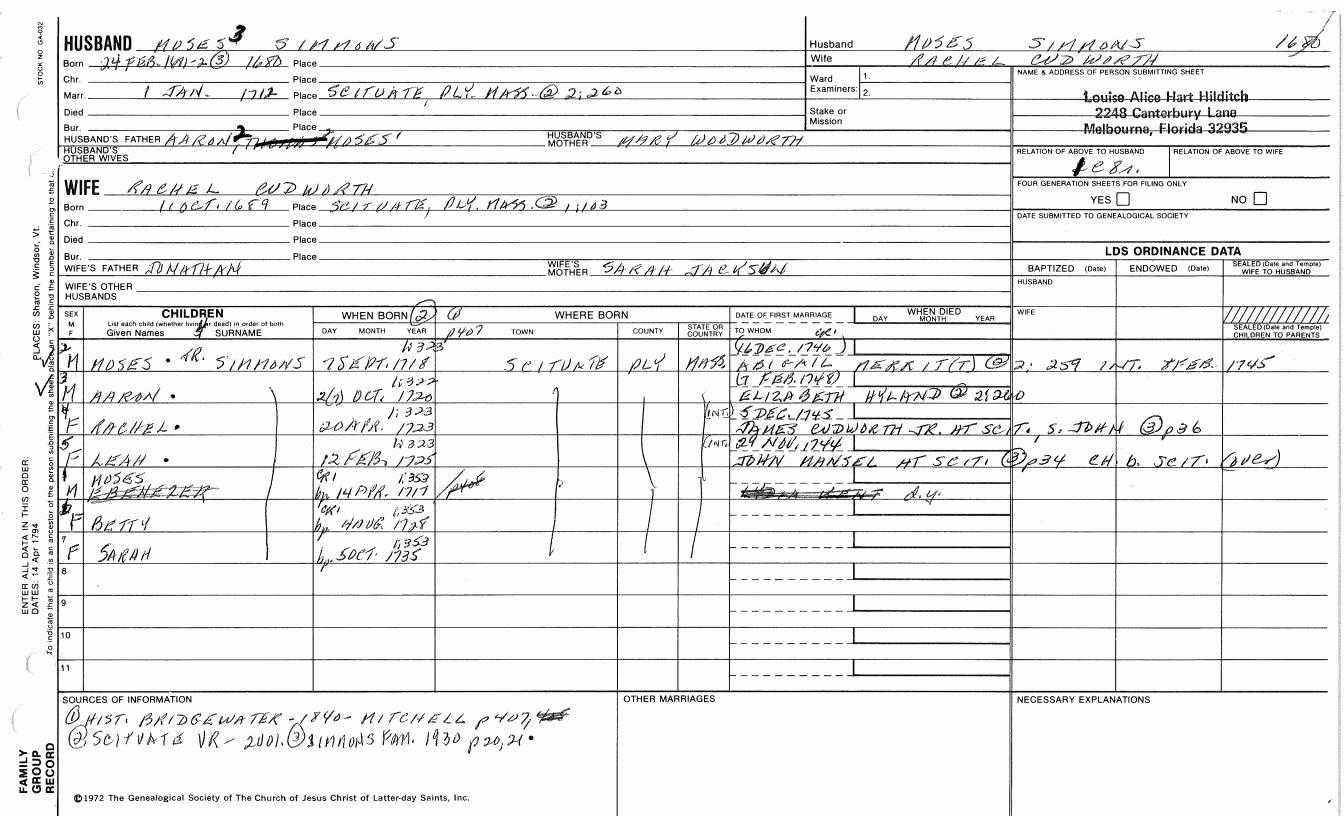 STOCK NO. GA-032
HUSBAND MOSES 3 SIMMONS
Born 24 FEB. 1681-2 (3) 1680 Place
Chr. Place
Marr. 1 JAN. 1712 Place SCITUATE, PLY. MASS. (2) 2;260
Died Place
Bur. Place
HUSBAND'S FATHER AARON 2, MOSES 1 HUSBAND'S MOTHER MARY WOODWORTH
HUSBAND'S OTHER WIVES
Husband MOSES SIMMONS 1680
Wife RACHEL CUDWORTH
Ward Examiners: 1.
2.
Stake or Mission
NAME & ADDRESS OF PERSON SUBMITTING SHEET
Louise Alice Hart Hilditch
2248 Canterbury Lane
Melbourne, Florida 32935
RELATION OF ABOVE TO HUSBAND RELATION OF ABOVE TO WIFE
FOUR GENERATION SHEETS FOR FILING ONLY
YES NO
DATE SUBMITTED TO GENEALOGICAL SOCIETY
WIFE RACHEL CUDWORTH
Born 11 OCT. 1689 Place SCITUATE, PLY. MASS. (2) 1;103
Chr. Place
Died Place
Bur. Place
WIFE'S FATHER JONATHAN WIFE'S MOTHER SARAH JACKSON
WIFE'S OTHER HUSBANDS
LDS ORDINANCE DATA
BAPTIZED (Date) ENDOWED (Date) SEALED (Date and Temple) WIFE TO HUSBAND
HUSBAND
WIFE
SEALED (Date and Temple) CHILDREN TO PARENTS
SEX M F
CHILDREN
List each child (whether living or dead) in order of birth
Given Names SURNAME
WHEN BORN (2)
DAY MONTH YEAR
(1) p407
WHERE BORN
TOWN COUNTY STATE OR COUNTRY
DATE OF FIRST MARRIAGE
TO WHOM
WHEN DIED
DAY MONTH YEAR
2 1; 323 (16 DEC. 1746)
M MOSES • JR. SIMMONS 7 SEPT. 1718 SCITUATE PLY MASS. ABIGAIL MERRIT(T) (2) 2; 259 INT. 8 FEB. 1745
3 1; 322 (7 FEB. 1748)
M AARON • 2(?) OCT. 1720 ELIZABETH HYLAND (2) 2;260
4 1; 323 (INT.) 5 DEC. 1745
F RACHEL • 20 APR. 1723 JAMES CUDWORTH JR. AT SCIT., S. JOHN (3) p36
5 1; 323 (INT.) 29 NOV. 1744
F LEAH • 12 FEB. 1725 JOHN MANSEL AT SCIT. (3) p34 CH. b. SCIT. (over)
1 MOSES CR1 1;353
M EBENEZER bp. 14 APR. 1717 p408 d.y.
6 CR1 1;353
F BETTY bp. 4 AUG. 1728
7 1;353
F SARAH bp. 5 OCT. 1735
8
9
10
11
SOURCES OF INFORMATION
(1) HIST. BRIDGEWATER - 1840 - MITCHELL p407,
(2) SCITUATE VR - 2001. (3) SIMMONS FAM. 1930 p20, 21 •
OTHER MARRIAGES
NECESSARY EXPLANATIONS
©1972 The Genealogical Society of The Church of Jesus Christ of Latter-day Saints, Inc.
ENTER ALL DATA IN THIS ORDER:
DATES: 14 Apr 1794
PLACES: Sharon, Windsor, Vt.
To indicate that a child is an ancestor of the person submitting the sheet, place an "X" behind the number pertaining to that
FAMILY GROUP RECORD